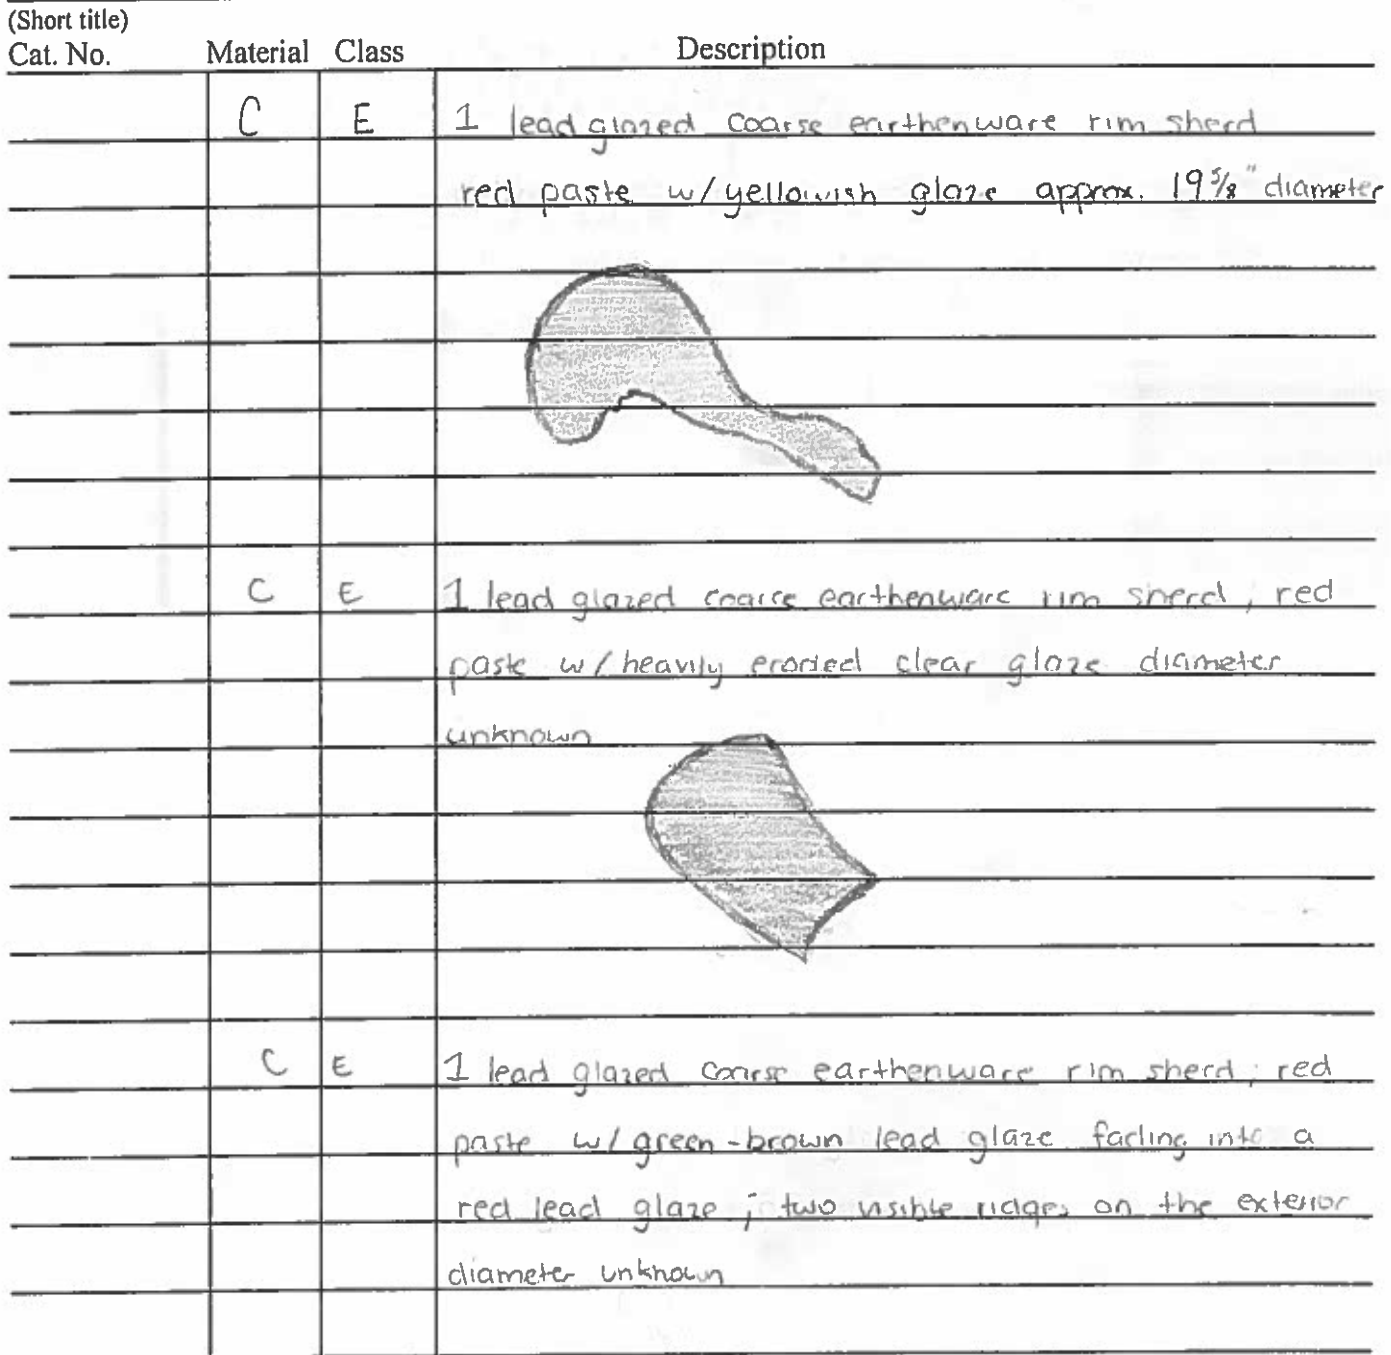 (Short title)
Cat. No. Material Class Description
C E 1 lead glazed coarse earthenware rim sherd
red paste w/ yellowish glaze approx. 19 5/8" diameter
C E 1 lead glazed coarse earthenware rim sherd; red
paste w/ heavily eroded clear glaze diameter
unknown
C E 1 lead glazed coarse earthenware rim sherd; red
paste w/ green-brown lead glaze fading into a
red lead glaze; two visible ridges on the exterior
diameter unknown